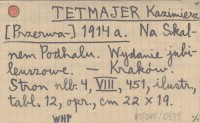 TETMAJER Kazimierz
[Przerwa-] 1914 a. Na Skal-
nem Podhalu. Wydanie jubi-
leuszowe. — Kraków.
Stron nlb. 4, VIII, 451, ilustr.,
tabl. 12, opr., cm 22 x 19.
WHP